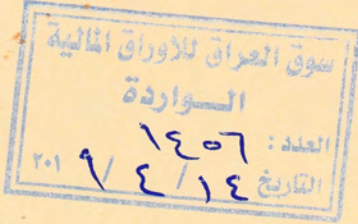 سوق العراق للاوراق المالية
الـــواردة
العدد : ١٤٥٦
التاريخ ١٤ / ٤ / ٢٠١٩